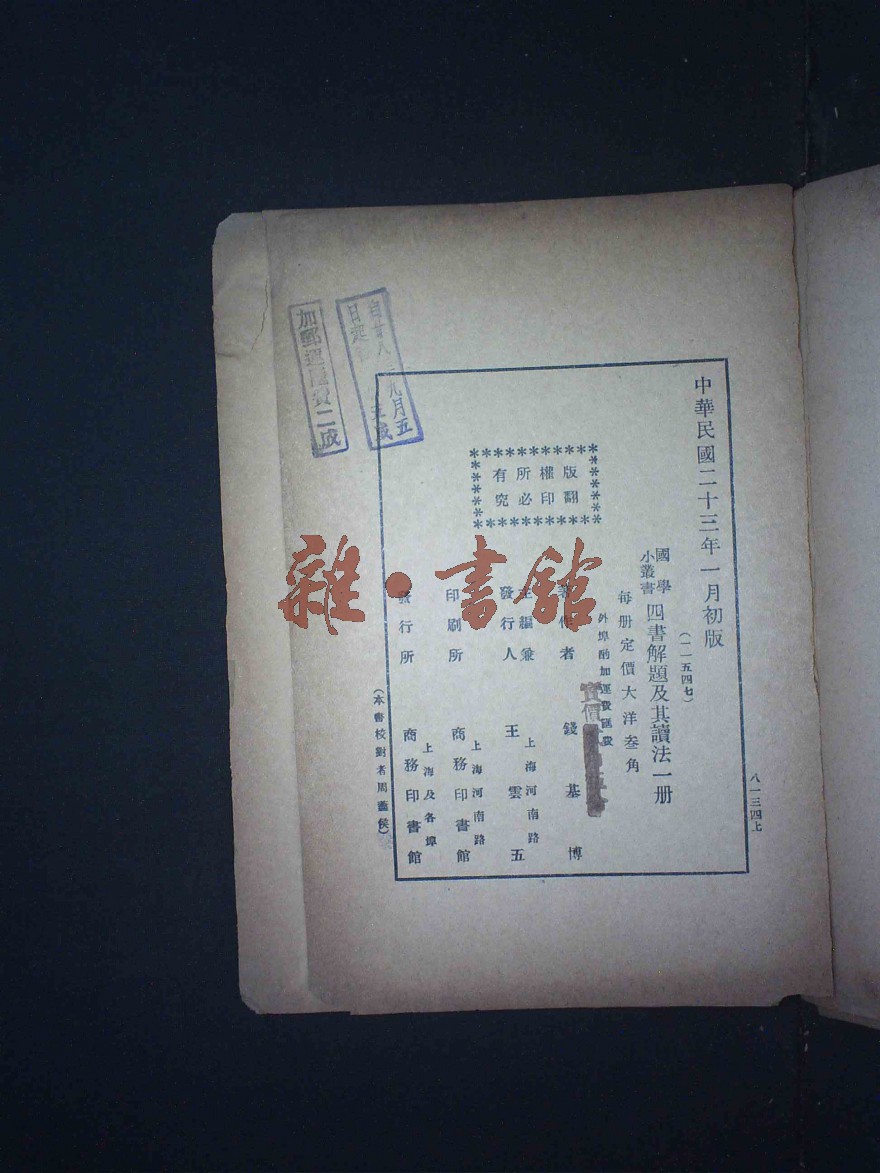 中華民國二十三年一月初版
(一一五四七)
國學
小叢書
四書解題及其讀法一册
每册定價大洋叁角
外埠酌加運費匯費
實價
版權所有
翻印必究
著作者 錢基博
主編兼
發行人 王雲五
上海河南路
印刷所 商務印書館
上海河南路
發行所 商務印書館
上海及各埠
(本書校對者周
八一三四上
加郵運匯費二成
九月五
雜·書館